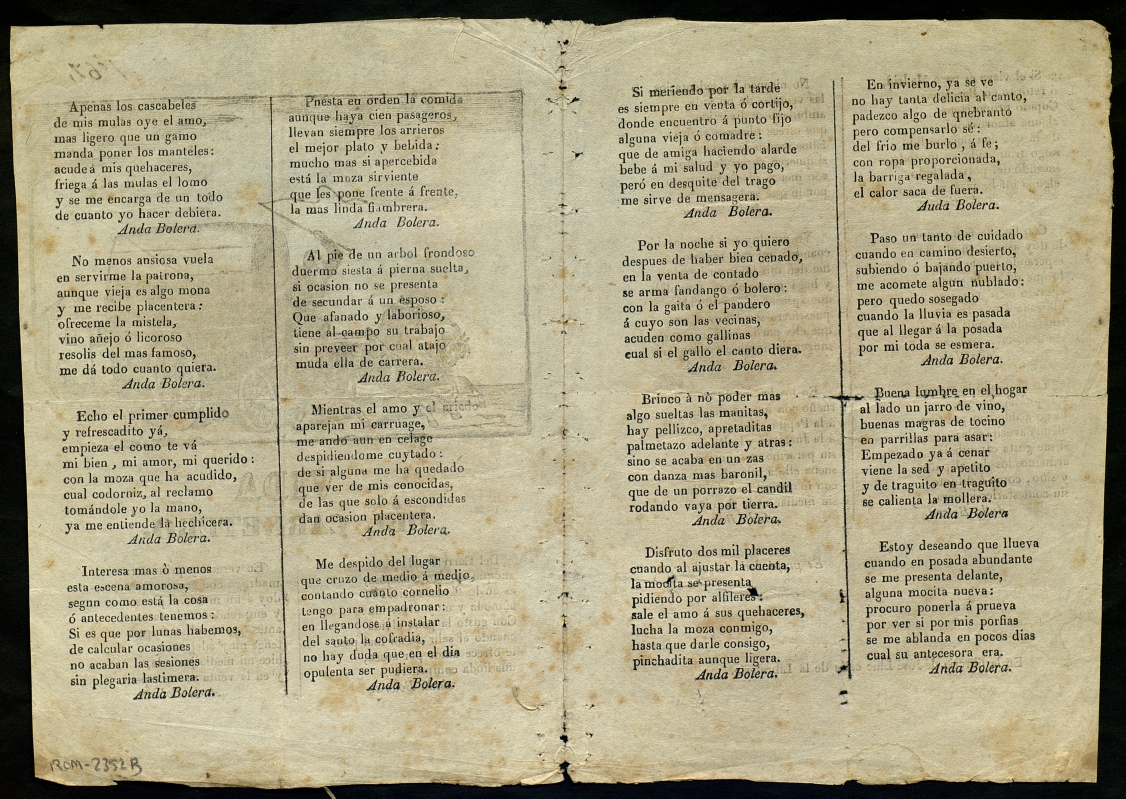 Apenas los cascabeles
de mis mulas oye el amo,
mas ligero que un gamo
manda poner los manteles:
acude á mis quehaceres,
friega á las mulas el lomo
y se me encarga de un todo
de cuanto yo hacer debiera.
Anda Bolera.
No menos ansiosa vuela
en servirme la patrona,
aunque vieja es algo mona
y me recibe placentera:
ofreceme la mistela,
vino añejo ó licoroso
resolis del mas famoso,
me dá todo cuanto quiera.
Anda Bolera.
Echo el primer cumplido
y refrescadito yá,
empieza el como te vá
mi bien, mi amor, mi querido:
con la moza que ha acudido,
cual codorniz, al reclamo
tomándole yo la mano,
ya me entiende la hechicera.
Anda Bolera.
Interesa mas ò menos
esta escena amorosa,
segnn como está la cosa
ó antecedentes tenemos:
Si es que por lunas habemos,
de calcular ocasiones
no acaban las sesiones
sin plegaria lastimera.
Anda Bolera.
Pnesta en orden la comida
aunque haya cien pasageros,
llevan siempre los arrieros
el mejor plato y bebida:
mucho mas si apercebida
está la moza sirviente
que les pone frente á frente,
la mas linda fiambrera.
Anda Bolera.
Al pie de un arbol frondoso
duermo siesta á pierna suelta,
si ocasion no se presenta
de secundar á un esposo:
Que afanado y laborioso,
tiene al campo su trabajo
sin preveer por cual atajo
muda ella de carrera.
Anda Bolera.
Mientras el amo y el criado
aparejan mi carruage,
me ando aun en celage
despidiendome cuytado:
de si alguna me ha quedado
que ver de mis conocidas,
de las que solo á escondidas
dan ocasion placentera.
Anda Bolera.
Me despido del lugar
que cruzo de medio á medio,
contando cuanto cornelio
tengo para empadronar:
en llegandose á instalar
del santo la cofradia,
no hay duda que en el dia
opulenta ser pudiera.
Anda Bolera.
Si meriendo por la tarde
es siempre en venta ó cortijo,
donde encuentro á punto fijo
alguna vieja ó comadre:
que de amiga haciendo alarde
bebe á mi salud y yo pago,
peró en desquite del trago
me sirve de mensagera.
Anda Bolera.
Por la noche si yo quiero
despues de haber bien cenado,
en la venta de contado
se arma fandango ó bolero:
con la gaita ó el pandero
á cuyo son las vecinas,
acuden como gallinas
cual si el gallo el canto diera.
Anda Bolera.
Brinco à nò poder mas
algo sueltas las manitas,
hay pellizco, apretaditas
palmetazo adelante y atras:
sino se acaba en un zas
con danza mas baronil,
que de un porrazo el candil
rodando vaya por tierra.
Anda Bolera.
Disfruto dos mil placeres
cuando al ajustar la cuenta,
la mocita se presenta
pidiendo por alfileres:
sale el amo á sus quehaceres,
lucha la moza conmigo,
hasta que darle consigo,
pinchadita aunque ligera.
Anda Bolera.
En invierno, ya se ve
no hay tanta delicia al canto,
padezco algo de qnebranto
pero compensarlo sé:
del frio me burlo, á fe;
con ropa proporcionada,
la barriga regalada,
el calor saca de fuera.
Auda Bolera.
Paso un tanto de cuidado
cuando en camino desierto,
subiendo ó bajando puerto,
me acomete algun nublado:
pero quedo sosegado
cuando la lluvia es pasada
que al llegar á la posada
por mi toda se esmera.
Anda Bolera.
Buena lumbre en el hogar
al lado un jarro de vino,
buenas magras de tocino
en parrillas para asar:
Empezado ya á cenar
viene la sed y apetito
y de traguito en traguito
se calienta la mollera.
Anda Bolera
Estoy deseando que llueva
cuando en posada abundante
se me presenta delante,
alguna mocita nueva:
procuro ponerla á prueva
por ver si por mis porfias
se me ablanda en pocos dias
cual su antecesora era.
Anda Bolera.
RCM-2352B